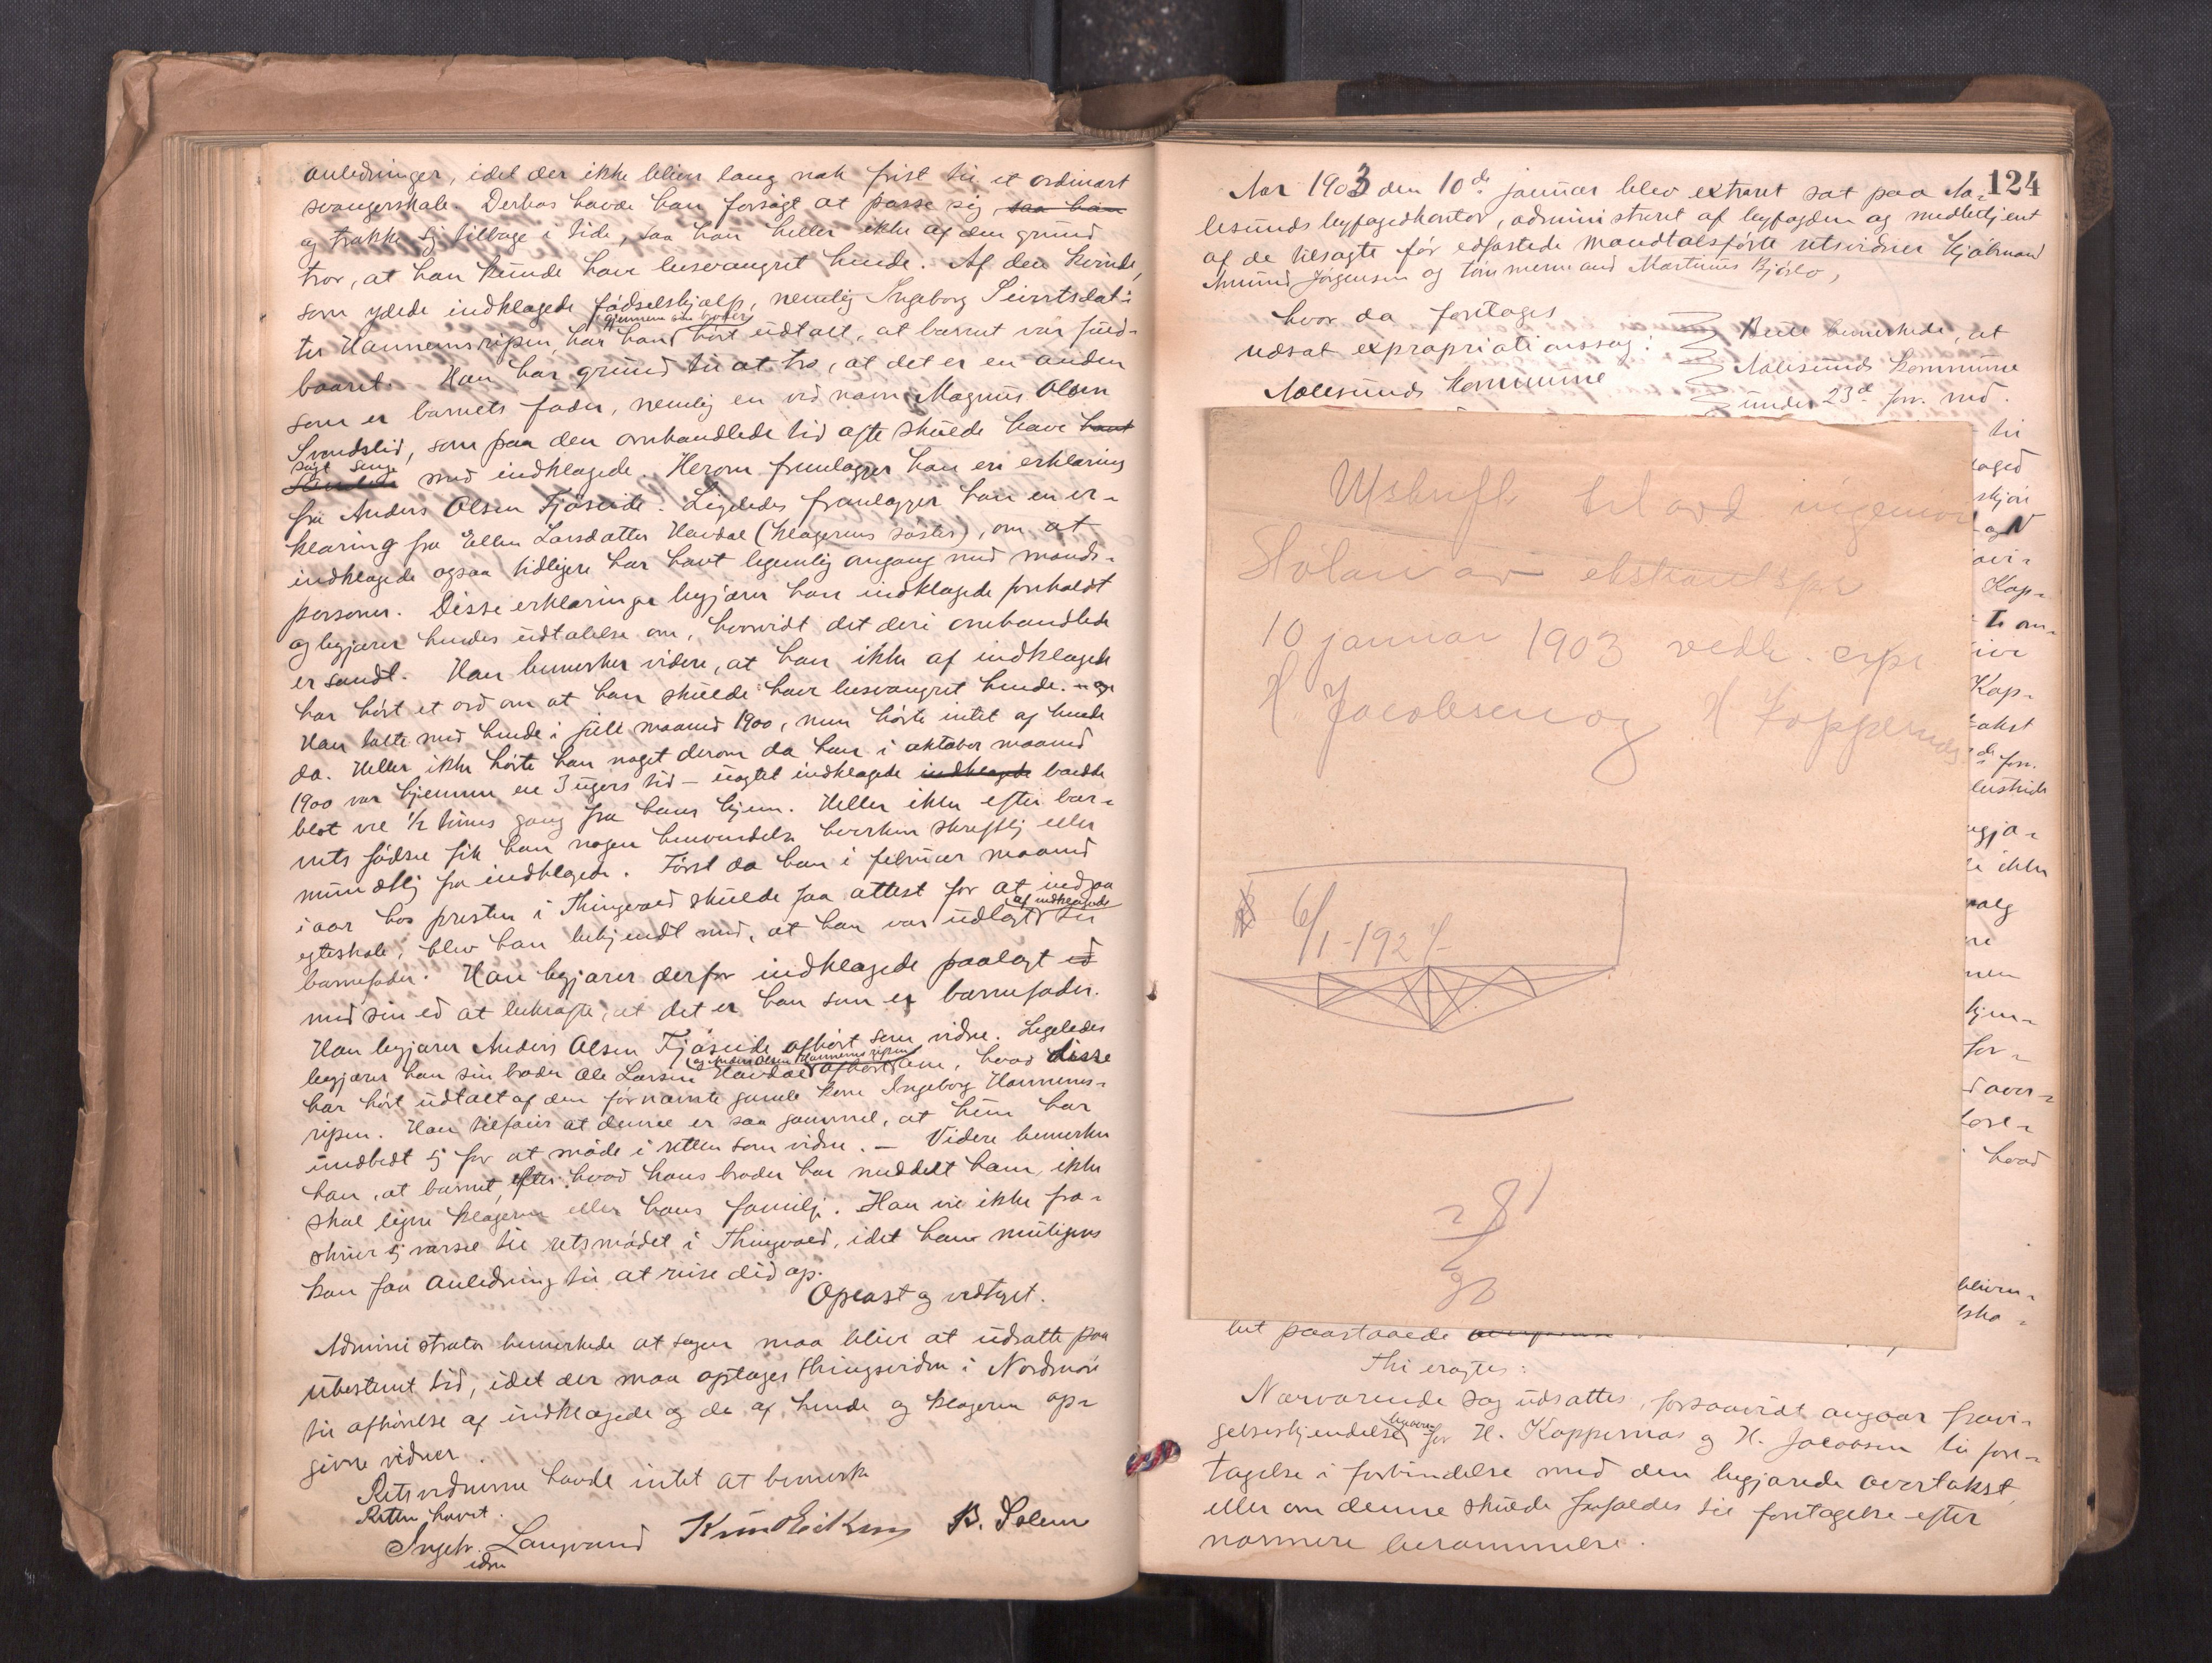 anledninger, idet der ikke bliver lang nok frist til et ordinært
svangerskab. Derhos havde han forsøgt at passe sig, saa han
og trække sig tilbage i tide, saa han heller ikke af den grund
tror, at han kunde have besvangret hende. Af den kvinde,
som ydede indklagede fødselshjælp, nemlig Ingeborg Sivertsdat-
ter Hannemsripen, har han gjennem sin broder hört udtalt, at barnet var fuld-
baaret. Han har grund til at tro, at det er en anden
som er barnets fader, nemlig en ved navn Magnus Olsen
Svendslid, som paa den omhandlede tid ofte skulde have havt
søgt seng med indklagede. Herom fremlægger han en erklæring
fra Anders Olsen Fjöseide. Ligeledes fremlægger han en er-
klæring fra Ellen Larsdatter Havdal (klagerens søster), om at
indklagede ogsaa tidligere har havt legemlig omgang med mands-
personer. Disse erklæringer begjærer han indklagede foreholdt
og begjærer hendes udtalelse om, hvorvidt det deri omhandlede
er sandt. Han bemerker videre, at han ikke af indklagede
har hört et ord om at han skulde have besvangret hende.
Han talte med hende i juli maaned 1900, men hörte intet af hende
da. Heller ikke hörte han noget derom da han i oktober maaned
1900 var hjemme en 3 ugers tid – uagtet indklagede indklagede boede
blot vel ½ times gang fra hans hjem. Heller ikke efter bar-
nets fødsel fik han nogen henvendelse hverken skriftlig eller
mundtlig fra indklagede. Først da han i februar maaned
i aar hos presten i Thingvold skulde faa attest for at indgaa
egteskab, blev han bekjendt med, at han var udlagt af indklagede til
barnefader. Han begjærer derfor indklagede paalagt ed
med sin ed at bekræfte, at det er han som er barnefader.
Han begjærer Anders Olsen Fjöseide afhört som vidne. Ligeledes
begjærer han sin broder Ole Larsen Havdal og Anders Olsen Hannemsripen afhört om, hvad disse
har hört udtalt af den førnævnte gamle kone Ingeborg Hannems-
ripen. Han tilføier at denne er saa gammel, at hun har
undbedt sig for at møde i retten som vidne. – Videre bemerker
han, at barnet, efter hvad hans broder har meddelt ham, ikke
skal ligne klageren eller hans familje. Han vil ikke fra-
skrive sig varsel til retsmødet i Thingvold, idet han muligens
kan faa anledning til at reise did op.
Oplæst og vedtaget.
Administrator bemerkede at sagen maa blive at udsætte paa
ubestemt tid, idet der maa optages thingsvidne i Nordmør
til afhörelse af indklagede og de af hende og klageren op-
givne vidner.
Retsvidnerne havde intet at bemerke
Retten hævet.
Ingebr. Langvand Knud Eriksen B. Solem
edsv
124
Aar 1903 den 10de januar blev extraret sat paa Aa-
lesunds byfogedkontor, administreret af byfogden og medbetjent
af de tilsagte før edfæstede mandtalsførte retsvidner kjøbmand
Amund Jørgensen og tømmermand Martinus Bjørlo,
hvor da foretages
udsat expropriationssag:
Aalesunds kommune
Rette bemerkede, at
Aalesunds kommune
under 23de forr. md.
Utskrift til avd ingeniør
av ekstraretspr
10 januar 1903 vedk. expr
H Jacobsen og H Koppernæs
6/1-1924
281
til
Kap-
Kap-
takst
forr.
ikke
for-
hvad
bet paastaaede
Thi eragtes:
Nærværende sag udsættes, forsaavidt angaar fravi-
gelseskjendelse for H. Koppernæs og H. Jacobsen til fore-
tagelse i forbindelse med den begjærede overtakst,
eller om denne skulde frafaldes til foretagelse efter
nærmere berammelse.